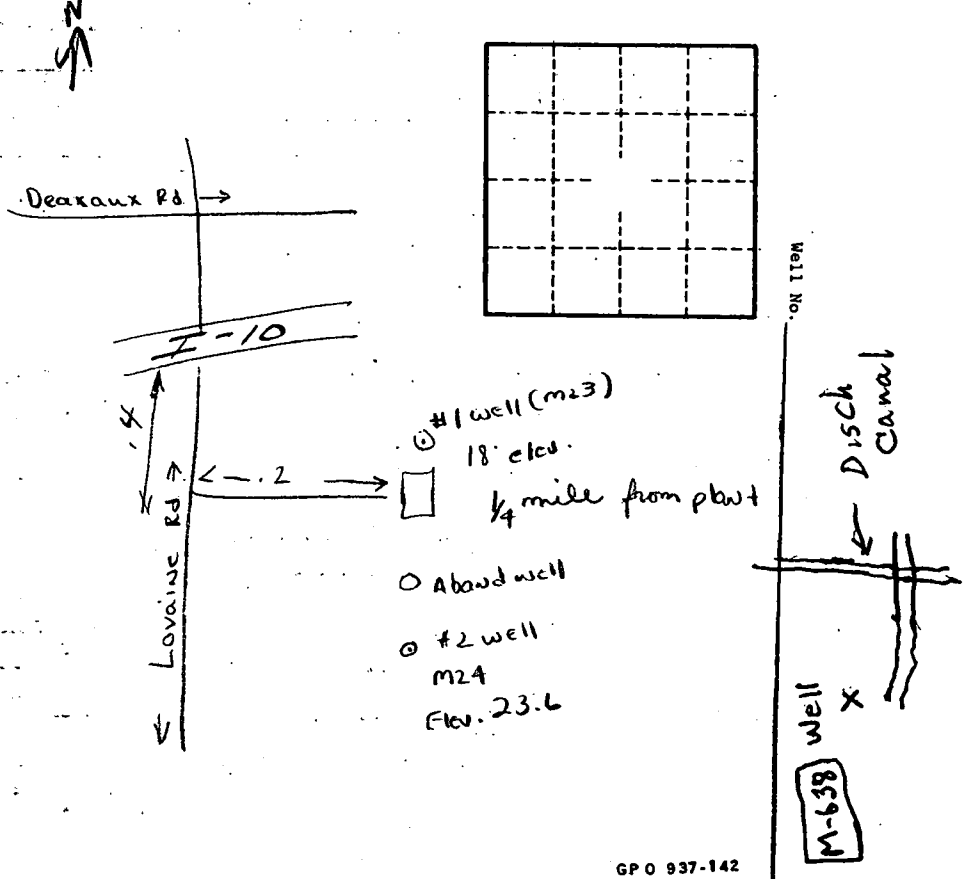 N
Deaxaux Rd →
I-10
.4
Lovaine Rd →
← .2 →
#1 well (m23)
18' elev.
1/4 mile from plant
O Aband well
#2 well
m24
Elev. 23.6
Well No.
← Disch
Canal
Well X
M-638
GPO 937-142